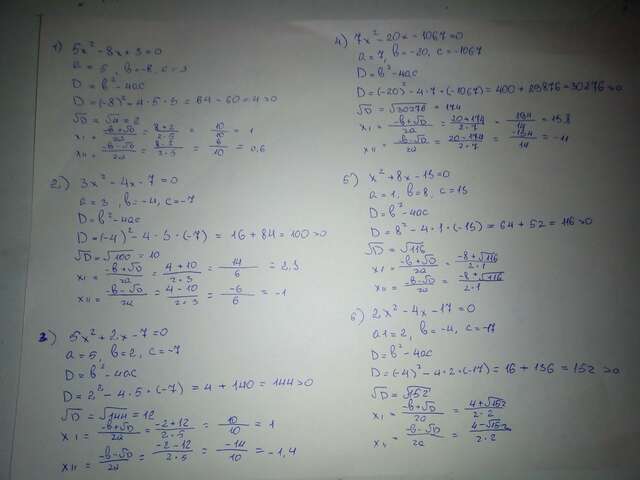 1) 5x² - 8x + 3 = 0
a = 5, b = -8, c = 3
D = b² - 4ac
D = (-8)² - 4·5·3 = 64 - 60 = 4 > 0
√D = √4 = 2
x₁ = (-b+√D)/2a = (8+2)/(2·5) = 10/10 = 1
x₁₁ = (-b-√D)/2a = (8-2)/(2·5) = 6/10 = 0,6
2) 3x² - 4x - 7 = 0
a = 3, b = -4, c = -7
D = b² - 4ac
D = (-4)² - 4·3·(-7) = 16 + 84 = 100 > 0
√D = √100 = 10
x₁ = (-b+√D)/2a = (4+10)/(2·3) = 14/6 = 2,3
x₁₁ = (-b-√D)/2a = (4-10)/(2·3) = -6/6 = -1
3) 5x² + 2x - 7 = 0
a = 5, b = 2, c = -7
D = b² - 4ac
D = 2² - 4·5·(-7) = 4 + 140 = 144 > 0
√D = √144 = 12
x₁ = (-b+√D)/2a = (-2+12)/(2·5) = 10/10 = 1
x₁₁ = (-b-√D)/2a = (-2-12)/(2·5) = -14/10 = -1,4
4) 7x² - 20x - 1067 = 0
a = 7, b = -20, c = -1067
D = b² - 4ac
D = (-20)² - 4·7·(-1067) = 400 + 29876 = 30276 > 0
√D = √30276 = 174
x₁ = (-b+√D)/2a = (20+174)/(2·7) = 194/14 = 13,8
x₁₁ = (-b-√D)/2a = (20-174)/(2·7) = -154/14 = -11
5) x² + 8x - 13 = 0
a = 1, b = 8, c = 13
D = b² - 4ac
D = 8² - 4·1·(-13) = 64 + 52 = 116 > 0
√D = √116
x₁ = (-b+√D)/2a = (-8+√116)/(2·1)
x₁₁ = (-b-√D)/2a = (-8+√116)/(2·1)
6) 2x² - 4x - 17 = 0
a1 = 2, b = -4, c = -17
D = b² - 4ac
D = (-4)² - 4·2·(-17) = 16 + 136 = 152 > 0
√D = √152
x₁ = (-b+√D)/2a = (4+√152)/(2·2)
x₁₁ = (-b-√D)/2a = (4-√152)/(2·2)